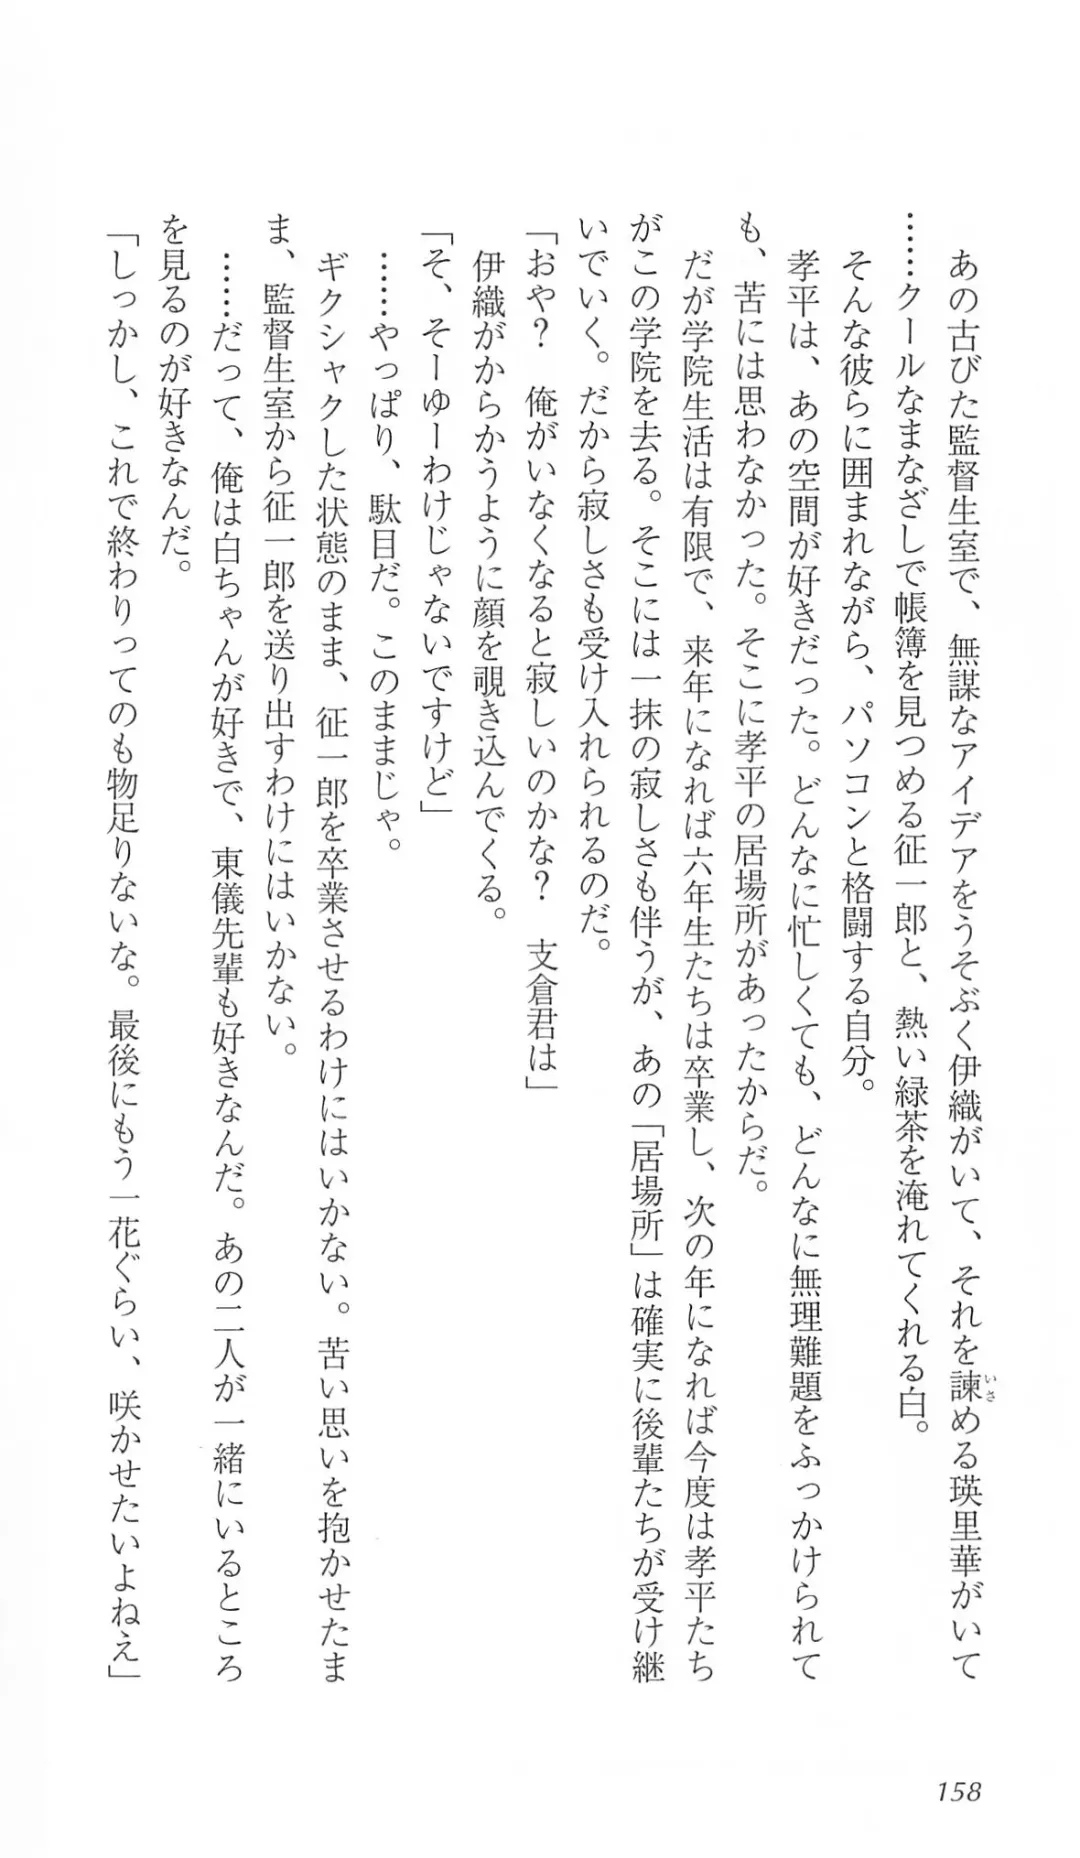 あの古びた監督生室で、無謀なアイデアをうそぶく伊織がいて、それを諫める瑛里華がいて
いさ
……クールなまなざしで帳簿を見つめる征一郎と、熱い緑茶を淹れてくれる白。
そんな彼らに囲まれながら、パソコンと格闘する自分。
孝平は、あの空間が好きだった。どんなに忙しくても、どんなに無理難題をふっかけられて
も、苦には思わなかった。そこに孝平の居場所があったからだ。
だが学院生活は有限で、来年になれば六年生たちは卒業し、次の年になれば今度は孝平たち
がこの学院を去る。そこには一抹の寂しさも伴うが、あの「居場所」は確実に後輩たちが受け継
いでいく。だから寂しさも受け入れられるのだ。
「おや？　俺がいなくなると寂しいのかな？　支倉君は」
伊織がからかうように顔を覗き込んでくる。
「そ、そーゆーわけじゃないですけど」
……やっぱり、駄目だ。このままじゃ。
ギクシャクした状態のまま、征一郎を卒業させるわけにはいかない。苦い思いを抱かせたま
ま、監督生室から征一郎を送り出すわけにはいかない。
……だって、俺は白ちゃんが好きで、東儀先輩も好きなんだ。あの二人が一緒にいるところ
を見るのが好きなんだ。
「しっかし、これで終わりってのも物足りないな。最後にもう一花ぐらい、咲かせたいよねえ」
158